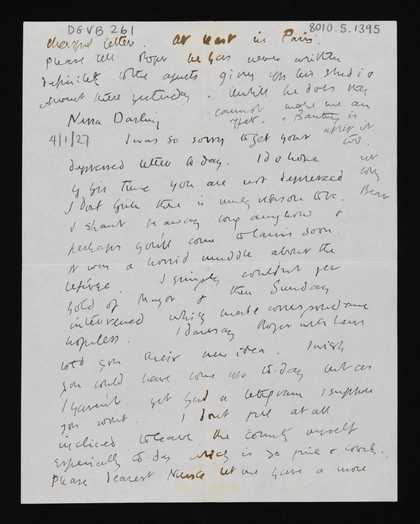 DGVB 261
8010.5.1395
cheerful letter. At least in Paris.
Please tell Roger he has never written
definitely to the agents giving up his studio
I went there yesterday. Until he does they
cannot make me an
offer. Bunting is
after it
too.
Nessa Darling
4/1/27 I was so sorry to get your
depressed letter to-day. I do hope
by this time you are not depressed
I don't think there is much reason to be.
I shan't be away long anyhow &
perhaps you'll come to Paris soon.
It was a horrid muddle about the
I simply couldn't get
hold of Mayor & then Sunday
intervened which made correspondence
hopeless. I daresay Roger will have
told you their new idea. I wish
you could have come up to-day but as
I haven't yet had a telegram I suppose
you won't. I don't feel at all
inclined to leave the country myself
especially to-day which is so fine & lovely.
Please dearest Nessa let me have a more